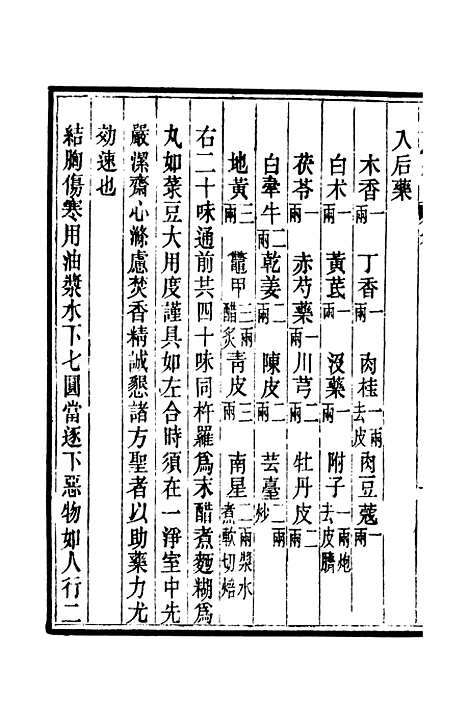 入后藥
木香一兩 丁香一兩 肉桂一兩去皮 肉豆蔻一兩
白术一兩 黃芪一兩 沒藥一兩 附子一兩炮去皮臍
茯苓一兩 赤芍藥一兩 川芎二兩 牡丹皮二兩
白牽牛二兩 乾姜二兩 陳皮二兩 芸臺二兩炒
地黃三兩 鼈甲三兩醋炙 青皮三兩 南星二兩漿水煮軟切焙
右二十味通前共四十味同杵羅爲末醋煮麵糊爲
丸如菉豆大用度謹具如左合時須在一淨室中先
嚴潔齋心滌慮焚香精誠懇諸方聖者以助藥力尤
効速也
結胸傷寒用油漿水下七圓當逐下惡物如人行二